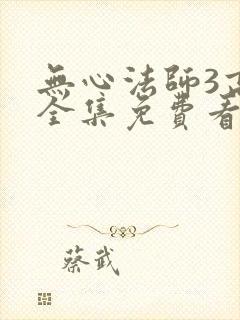 無心法師3
全集免費看
蔡武